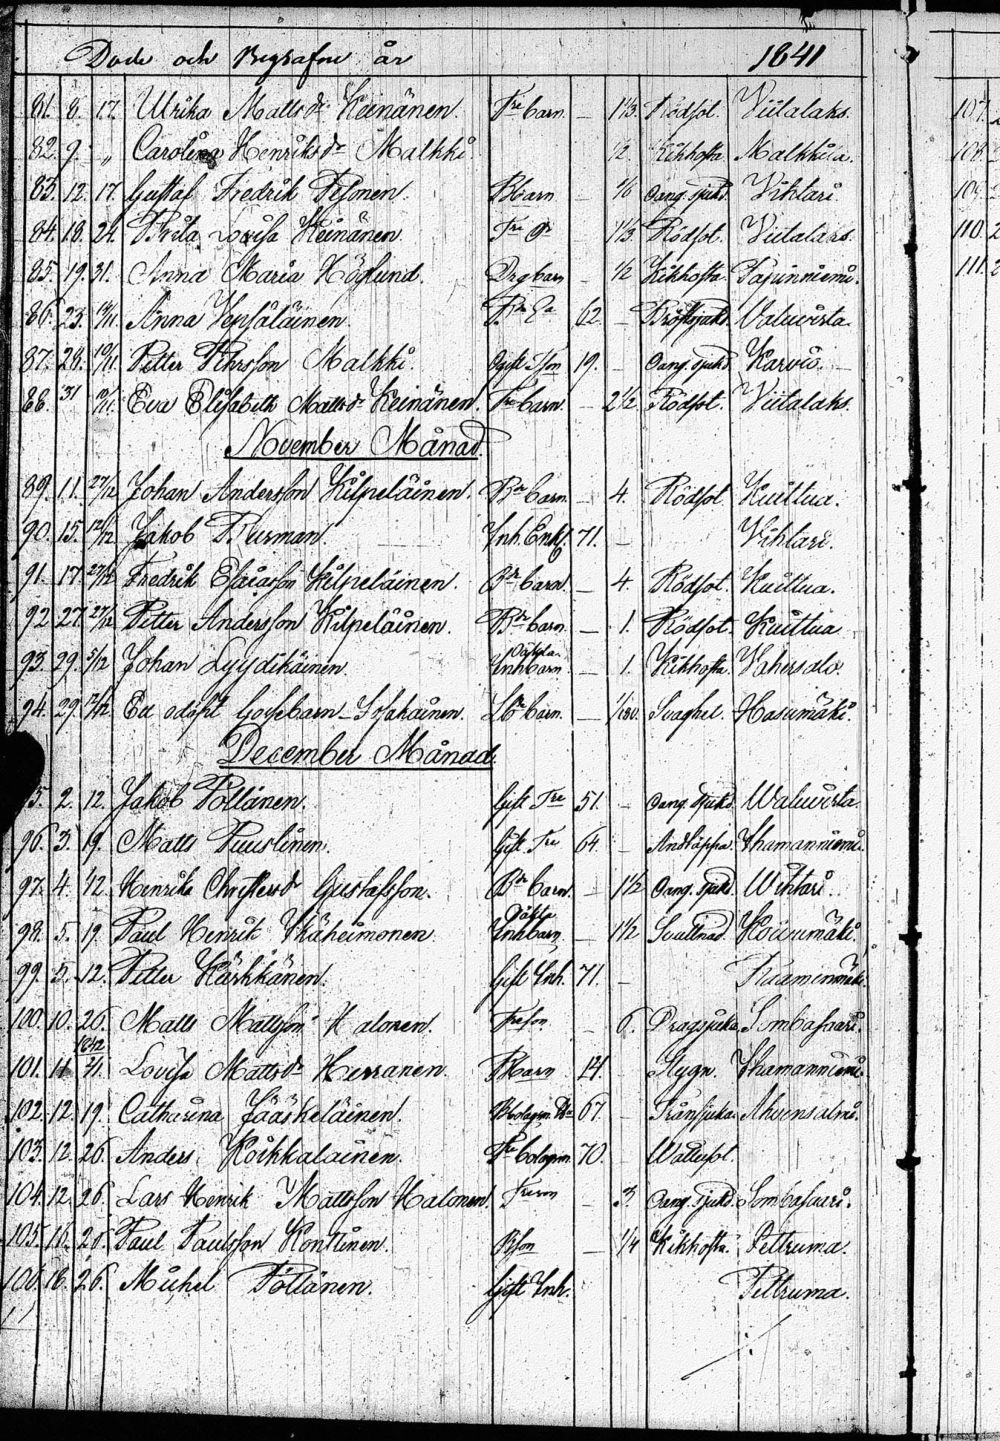 Döde och Begrafne år 1841
81. 8. 17. Ulrika Mattsdr Keinänen. Fre barn. – 1 1/3 Rödsot. Viitalaks.
82. 9. „ Carolina Henriksdr Malkki 1/2 Kikhosta Malkkila.
83. 12. 17. Gustaf Fredrik Pesonen. Bbarn 1/6 Oang. sjukd. Vihtari.
84. 18. 24. Brita Lovisa Keinänen Fre Dr – 1 1/3. Rödsot. Viitalaks.
85. 19. 31. Anna Maria Höglund. Drgbarn – 1/2 Kikhosta. Papinniemi.
86. 23. /11 Anna Vepsäläinen. 62. – Bröstsjukd. Valuvirta.
87. 28. /11 Petter Pehrsson Malkki. Ogift Son 19. – Oang. sjukd. Karvio.
88. 31 /11. Eva Elisabeth Mattsdr Keinänen. Fre barn. – 2 1/2 Rödsot. Viitalaks.
November Månad.
89. 11. 27/12 Johan Andersson Kilpeläinen. Br barn. – 4. Rödsot Kuittua.
90. 15. 12/12 Jakob Burman. Inh. Enkl. 71. – Vihtari.
91. 17. 27/12 Fredrik Esaiasson Kilpeläinen. Br barn. – 4. Rödsot. Kuittua.
92 27. 27/12 Petter Andersson Kilpeläinen. Br barn – 1. Rödsot. Kuittua
93. 29. 5/12 Johan Lyydikäinen. Oäkta Inhbarn – 1. Kikhosta. Vahersalo.
94. 29. /12 Ett odöpt Gossebarn – Ifsakainen. barn. – 1/180. Svaghet. Hasumäki.
December Månad.
2. 12. Jakob Pöllänen. Gift Fre 51. – Oang. sjukd. Waluvirta.
96. 3. 19. Matts Puustinen. Gift. Fre 64. – Andtäppa. Ihamanniemi.
97. 4. 12. Henrika Christersdr Gustafsson. Br barn. – 1 1/2 Oang. sjukd. Wihtari.
98. 5. 19. Paul Henrik Ikäheimonen. Oäkta Inhbarn. – 1 1/2 Svullnad. Koivumäki.
99. 5. 12. Petter Kärkkänen. Gift Inh. 71. –
100. 10. 26. Matts Mattsson Halonen. Freson – 6. Dragsjuka Sombasaari.
101. 11 1842 /1. Lovisa Mattsdr Herranen. Bbarn 14. Slygn. Ihamanniemi.
102. 12. 19. Catharina Jääskeläinen. 67. – Tränsjuka. Ahvensalmi.
103. 12. 26. Anders Koikkalainen. Fre bolagsm. 70. – Wattusot.
104. 12. 26. Lars Henrik Mattsson Halonen. Freson – 3. Oang. sjukd. Sombasaari.
105. 16. 26. Paul Paulsson Konttinen. Bson – 1/4 Kikhosta. Pettruma.
106. 18. 26. Michel Pöllänen. Gift Inh. Pettruma.
107.
108.
109.
110. 2
111. 2